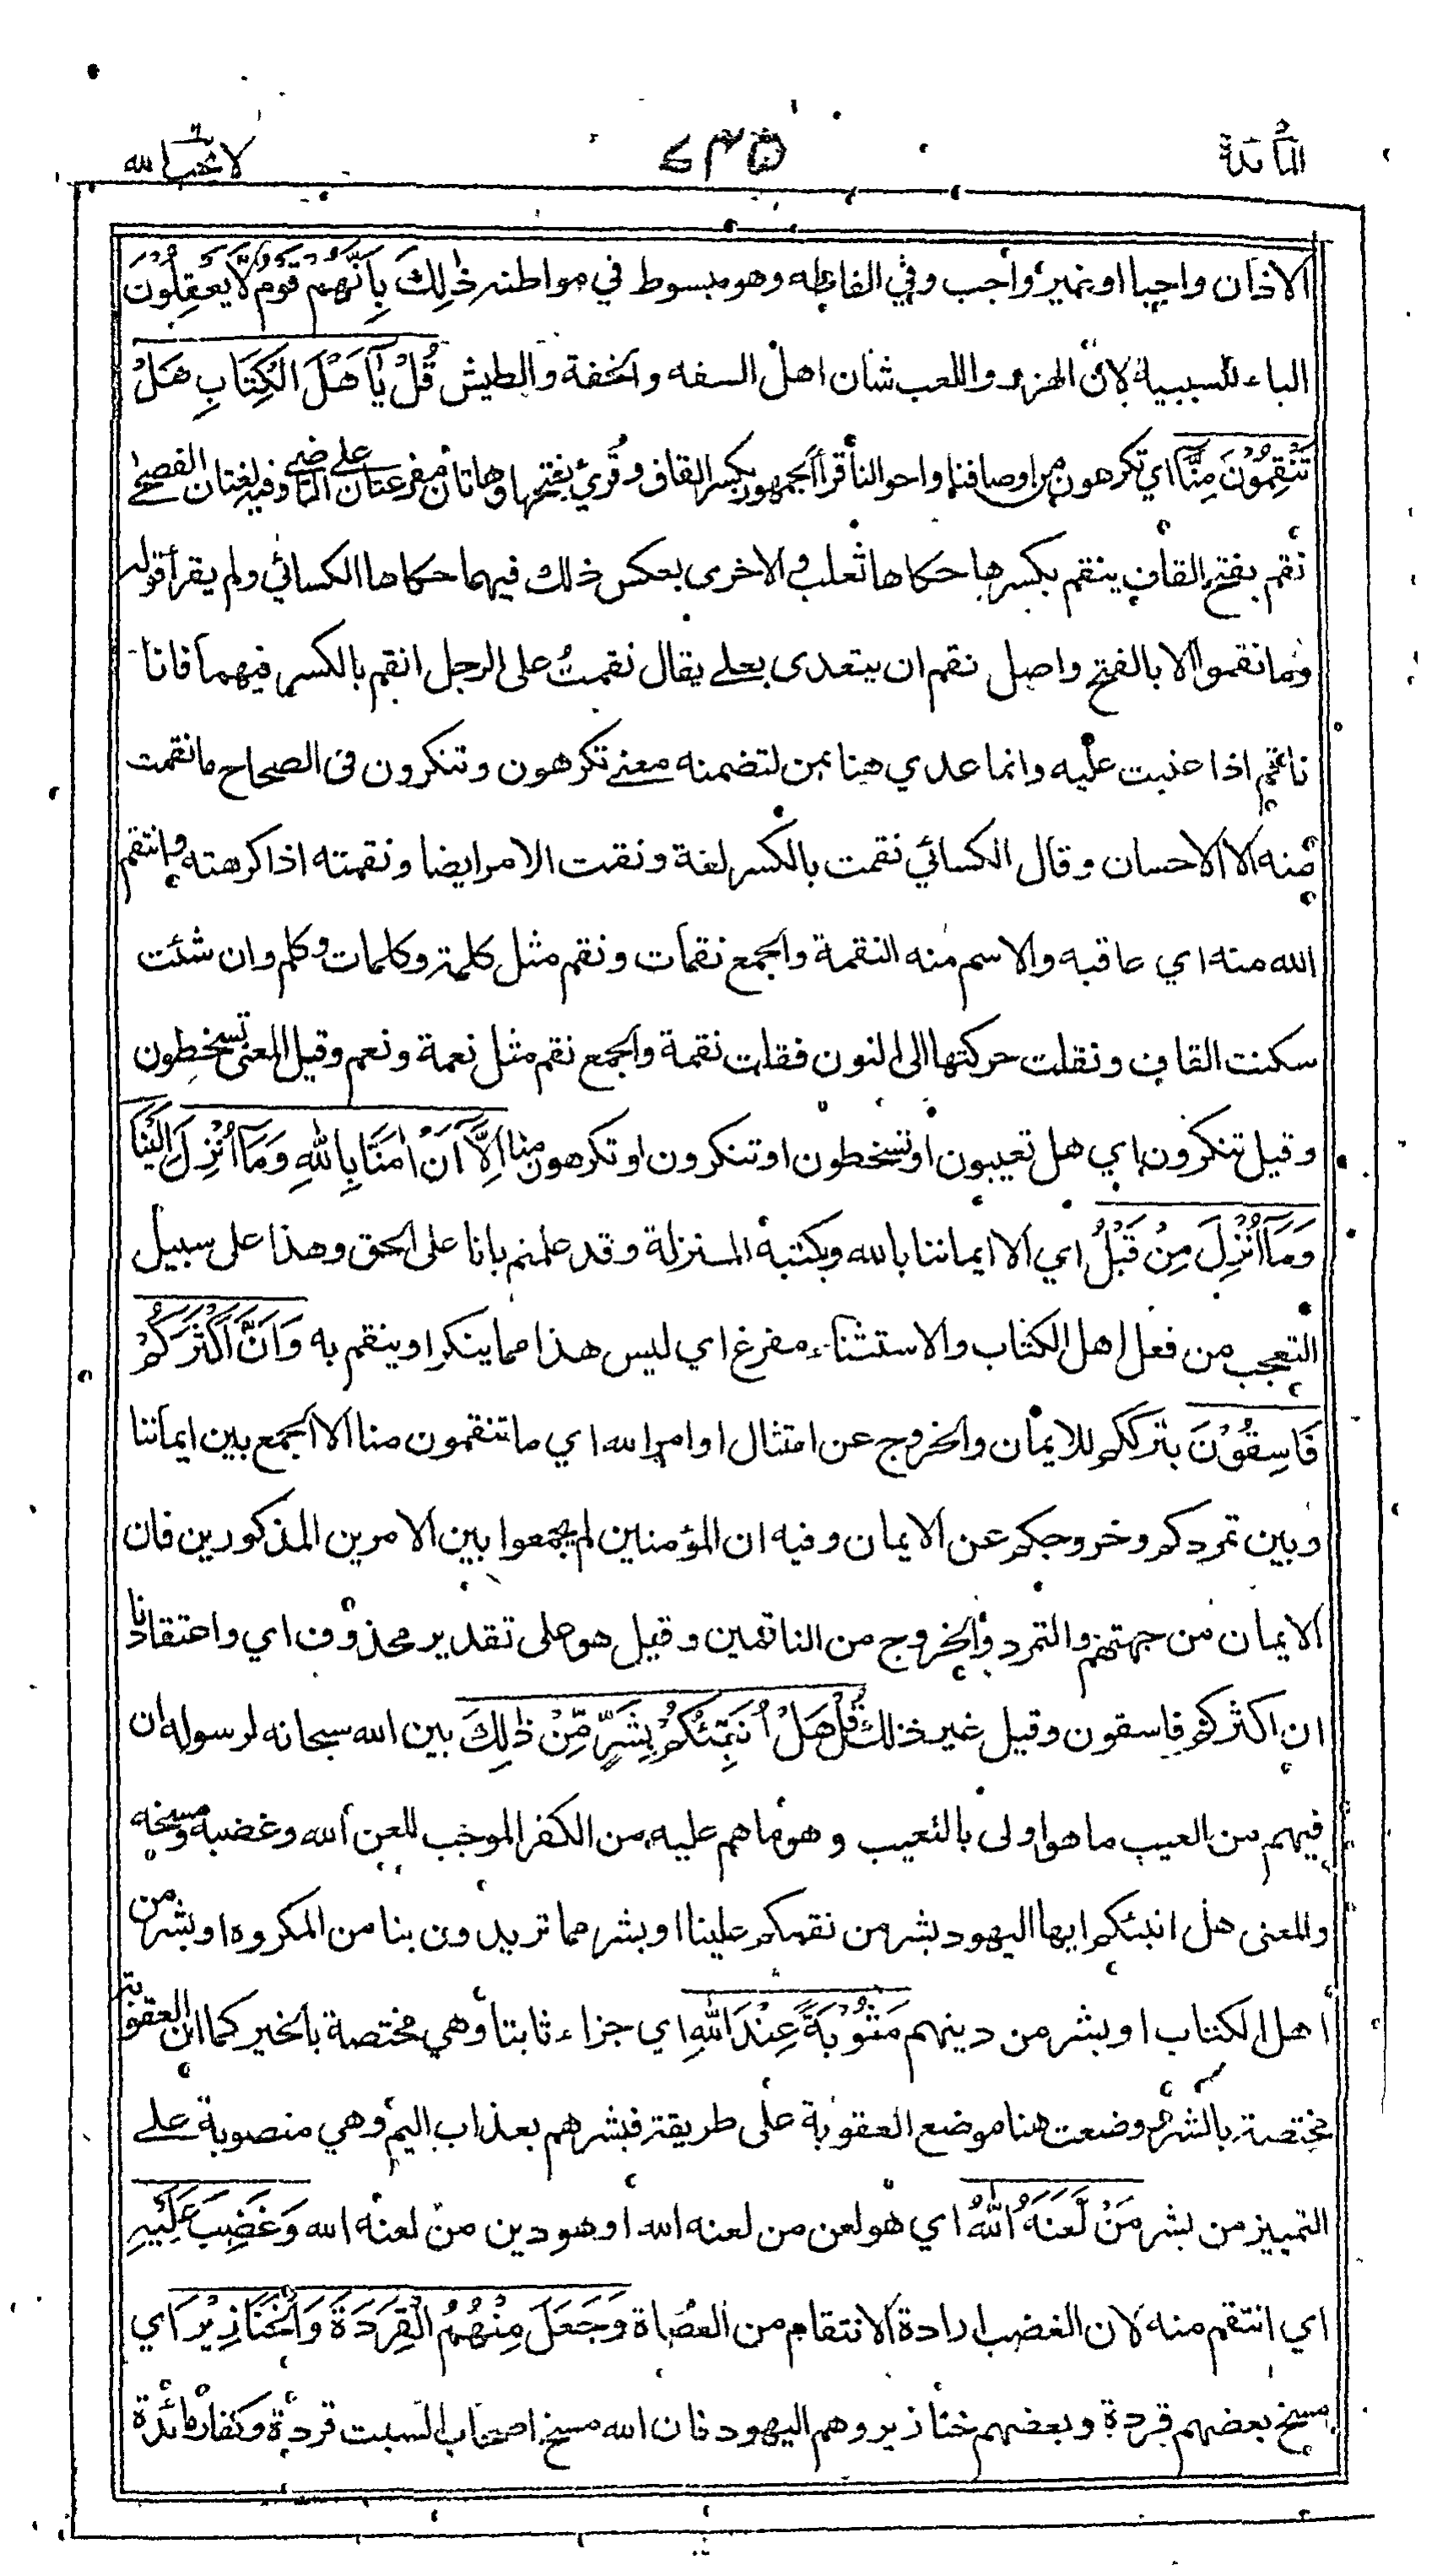 المائدة ٦٣٥ لا يحب الله
الاذان واجبا او غير واجب وفي الفاظه وهو مبسوط في مواطنه ذٰلِكَ بِاَنَّهُمْ قَوْمٌ لَّا يَعْقِلُوْنَ
الباء للسببية لان الهزء واللعب شان اهل السفه والخفة والطيش قُلْ يٰٓاَهْلَ الْكِتَابِ هَلْ
تَنْقِمُوْنَ مِنَّا اي تكرهون من اوصافنا واحوالنا قرأ الجمهور بكسر القاف وقُرئ بفتحها وهاتان مفرعتان على الماضي وفيه لغتان الفصحى
نقم بفتح القاف ينقم بكسرها حكاها ثعلب والاخرى بعكس ذلك فيهما حكاها الكسائي ولم يقرأ قوله
وما نقموا الا بالفتح واصل نقم ان يتعدى بعلى يقال نقمتُ على الرجل انقم بالكسر فيهما فانا
ناقم اذا عتبت عليه وانما عدي هنا بمن لتضمنه معنى تكرهون وتنكرون في الصحاح ما نقمت
منه الا الاحسان وقال الكسائي نقمت بالكسر لغة ونقمت الامر ايضا ونقمته اذا كرهته وانتقم
الله منه اي عاقبه والاسم منه النقمة والجمع نقمات ونقم مثل كلمة وكلمات وكلم وان شئت
سكنت القاف ونقلت حركتها الى النون فقلت نقمة والجمع نقم مثل نعمة ونعم وقيل المعنى تسخطون
وقيل تنكرون اي هل تعيبون او تسخطون او تنكرون او تكرهون منا اِلَّآ اَنْ اٰمَنَّا بِاللهِ وَمَآ اُنْزِلَ اِلَيْنَا
وَمَآ اُنْزِلَ مِنْ قَبْلُ اي الا ايماننا بالله وبكتبه المنزلة وقد علمتم بانا على الحق وهذا على سبيل
التعجب من فعل اهل الكتاب والاستثناء مفرغ اي ليس هذا مما ينكر او ينقم به وَاَنَّ اَكْثَرَكُمْ
فَاسِقُوْنَ بترككم للايمان والخروج عن امتثال اوامر الله اي ما تنقمون منا الا الجمع بين ايماننا
وبين تمردكم وخروجكم عن الايمان وفيه ان المؤمنين لم يجمعوا بين الامرين المذكورين فان
الايمان من جهتهم والتمرد والخروج من الناقمين وقيل هو على تقدير محذوف اي واعتقادنا
ان اكثركم فاسقون وقيل غير ذلك قُلْ هَلْ اُنَبِّئُكُمْ بِشَرٍّ مِّنْ ذٰلِكَ بين الله سبحانه لرسوله ان
فيهم من العيب ما هو اولى بالتعييب وهو ما هم عليه من الكفر الموجب للعن الله وغضبه ومسخه
والمعنى هل انبئكم ايها اليهود بشر من نقمكم علينا او بشر مما تريدون بنا من المكروه او بشر من
اهل الكتاب او بشر من دينهم مَثُوْبَةً عِنْدَ اللهِ اي جزاء ثابتا وهي مختصة بالخير كما ان العقوبة
مختصة بالشر ووضعت هنا موضع العقوبة على طريقة فبشرهم بعذاب اليم وهي منصوبة على
التمييز من بشر مَنْ لَّعَنَهُ اللهُ اي هو لعن من لعنه الله او هو دين من لعنه الله وَغَضِبَ عَلَيْهِ
اي انتقم منه لان الغضب ارادة الانتقام من العصاة وَجَعَلَ مِنْهُمُ الْقِرَدَةَ وَالْخَنَازِيْرَ اي
مسخ بعضهم قردة وبعضهم خنازير وهم اليهود فان الله مسخ اصحاب السبت قردة وكفار مائدة